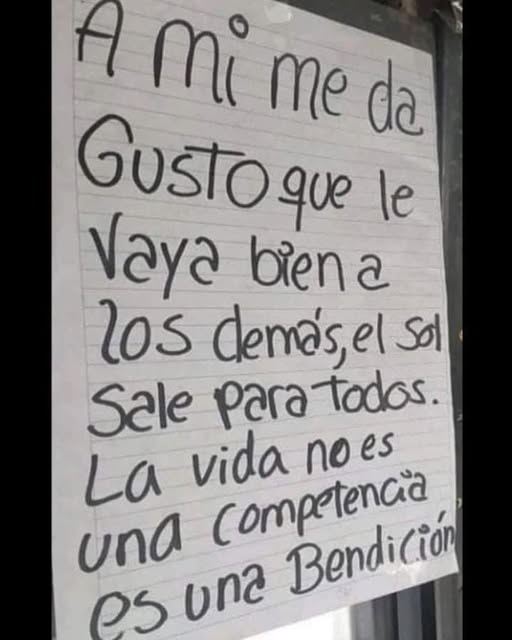 A mi me da
GUSTO que le
Vaya bien a
los demás, el sol
Sale para todos.
La vida no es
una competencia
es una Bendición